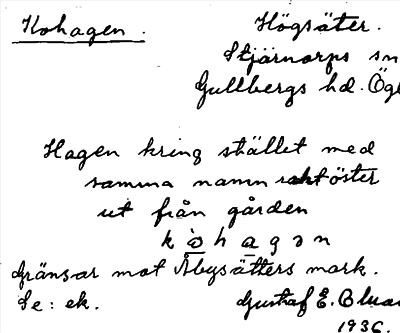 Kohagen.
Högsäter.
Stjärnorps sn
Gullbergs hd. Ög
Hagen kring stället med
samma namn rakt öster
ut från gården
k ò h a g ə n
Gränsar mot Åbysätters mark.
Se: ek.
Gustaf E.
1936.